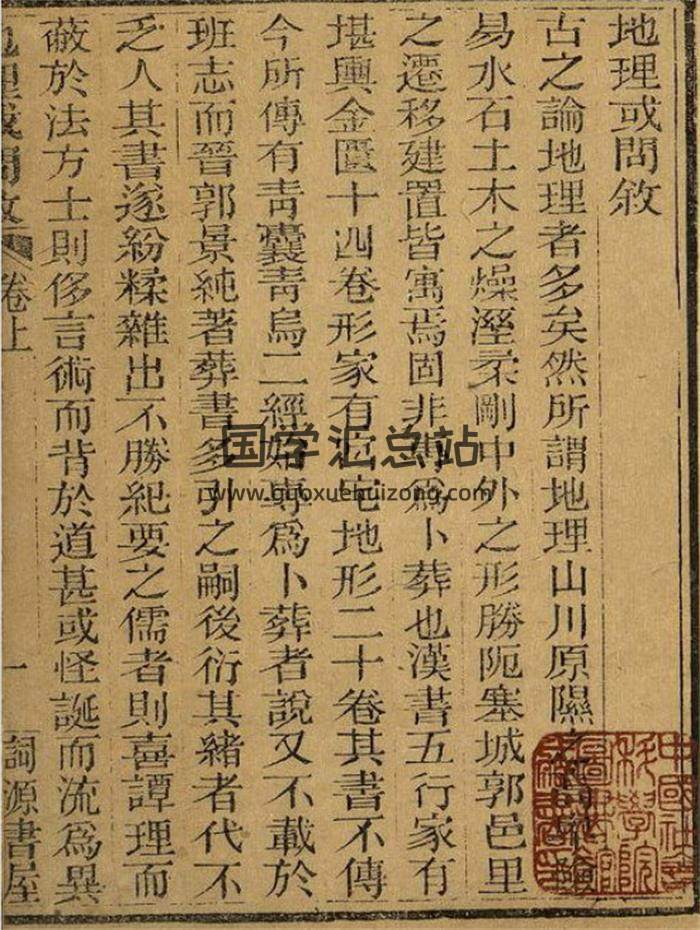 地理或問敘
古之論地理者多矣然所謂地理山川原隰之險
易水石土木之燥溼柔剛中外之形勝阨塞城郭邑里
之遷移建置皆寓焉固非專爲卜葬也漢書五行家有
堪輿金匱十四卷形家有宮宅地形二十卷其書不傳
今所傳有青囊青烏二經始專爲卜葬者說又不載於
班志而晉郭景純著葬書多引之嗣後衍其緒者代不
乏人其書遂紛糅雜出不勝紀要之儒者則喜譚理而
蔽於法方士則侈言術而背於道甚或怪誕而流爲異
地理或問敘 卷上 一 詞源書屋
国学汇总站
www.guoxuehuizong.com
中國社
科學院